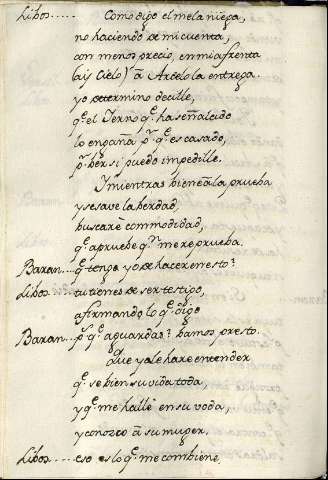 Libos..... Como digo el mela niega,
no haciendo de mi cuenta,
con menos precio, en mi afrenta
(ay Cielo) â Arcelo la entrega.
yo determino decille,
q.e el Ierno q.e ha señalcido
lo engaña p.r q.e es casado,
p.r ber si puedo impedille.
I mientras biene â la prueba
y se save la berdad,
buscarè commodidad,
q.e apruebe q.n me reprueba.
Baran... q.e tengo yo de hacer en esto?
Libos..... tu tienes de ser testigo,
afirmando lo q.e digo
Baran.... p.r q.e aguardas? bamos presto.
Que ya le hare entender
q.e se bien su vida toda,
y q.e me hallè en su voda,
y conozco â su muger.
Libos..... eso es lo q.e me combiene.